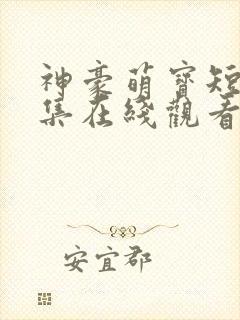 神豪萌寶短
集在綫觀看
安宜郡